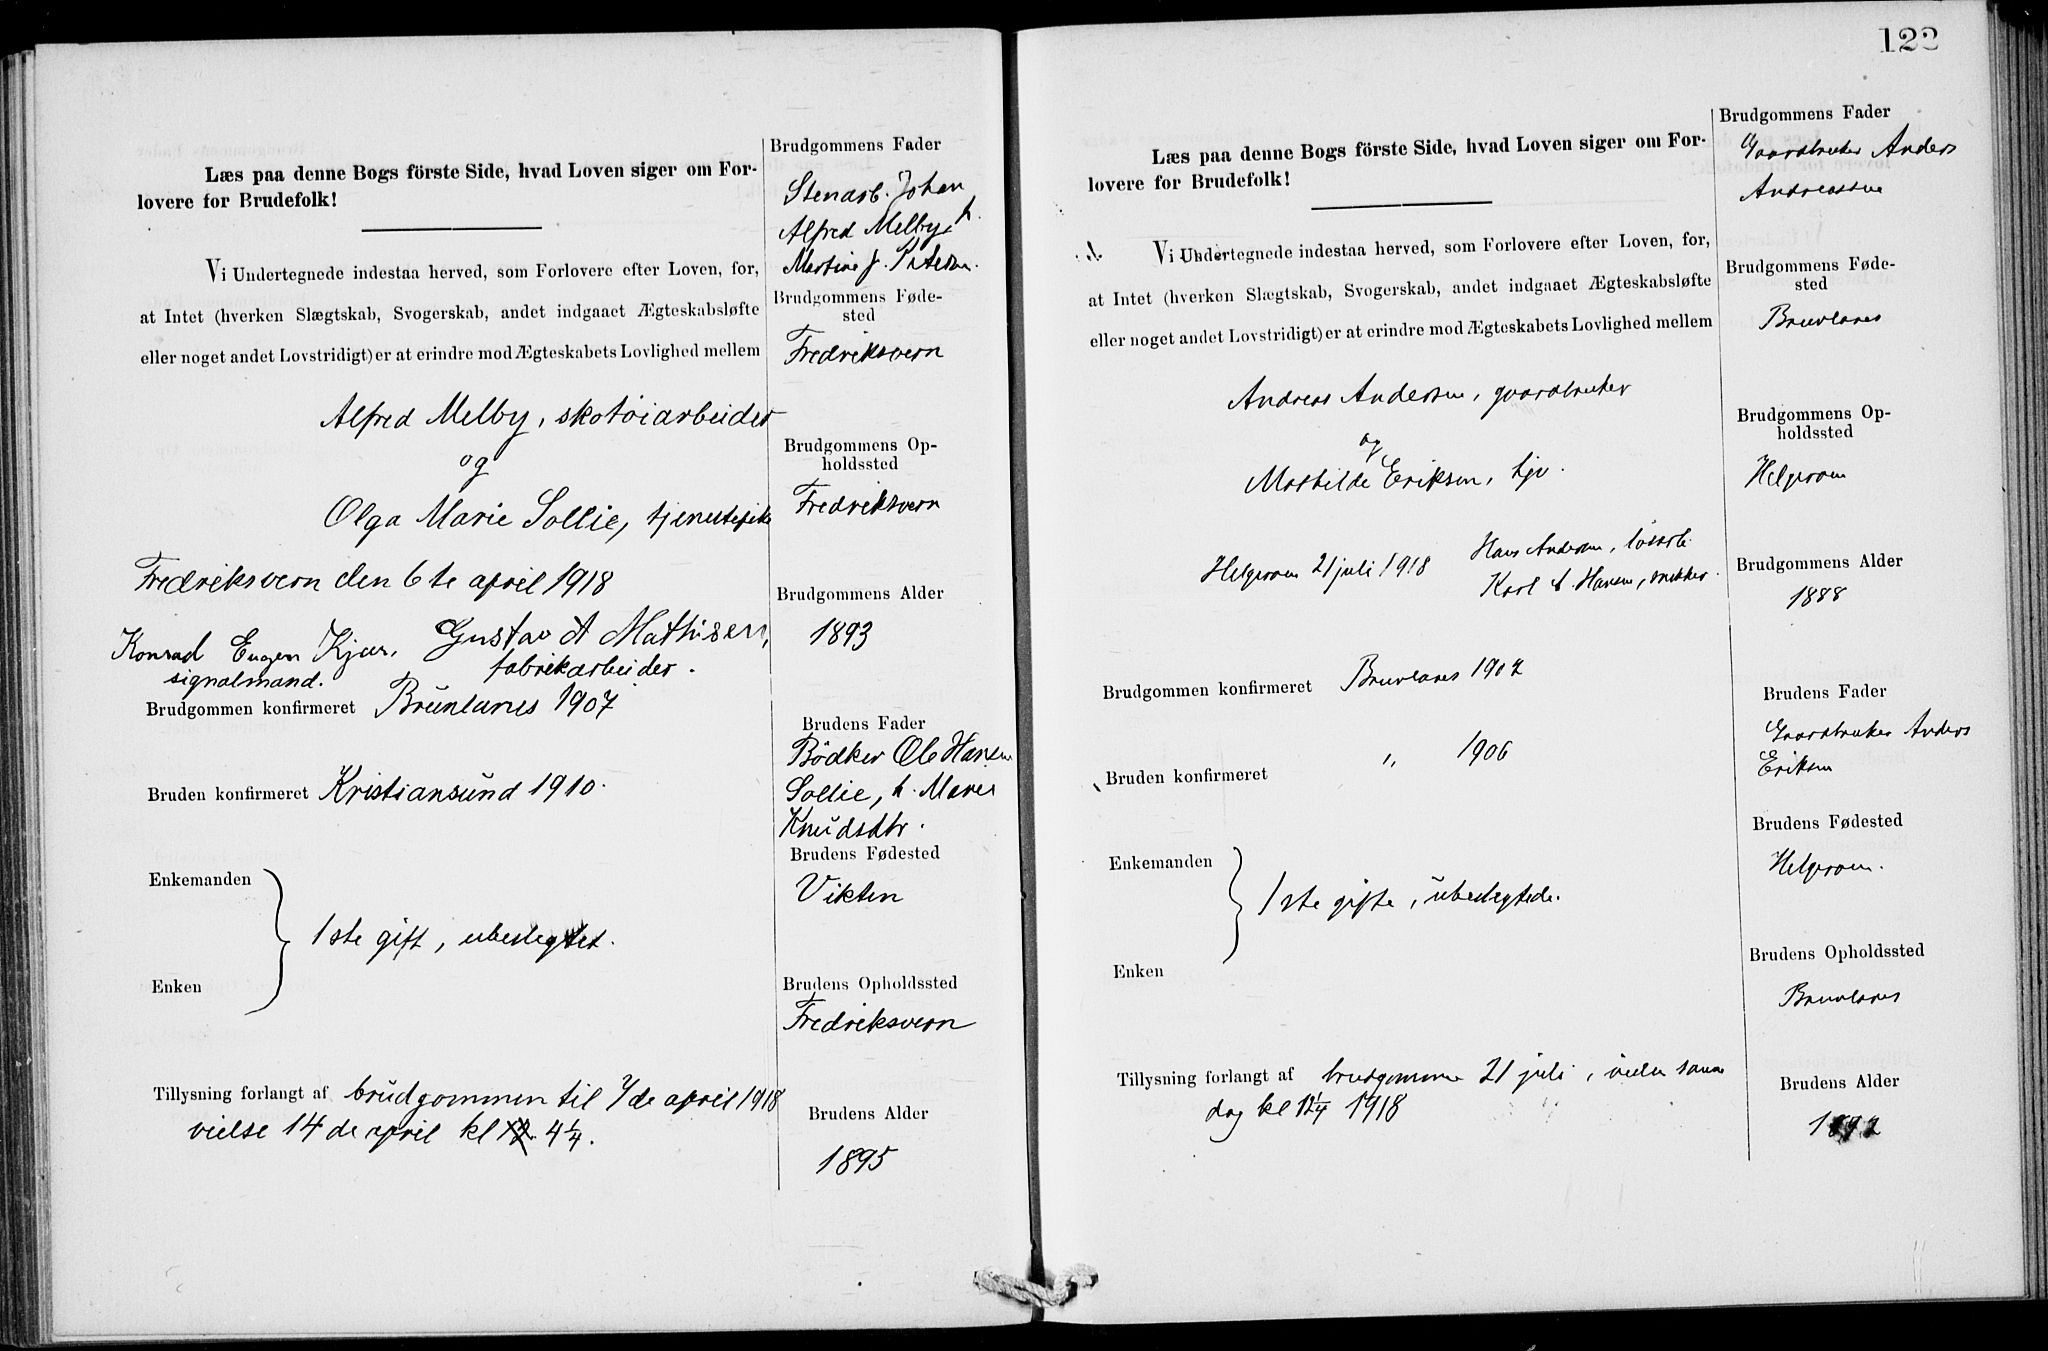 Læs paa denne Bogs förste Side, hvad Loven siger om For-
lovere for Brudefolk!
Vi Undertegnede indestaa herved, som Forlovere efter Loven, for,
at Intet (hverken Slægtskab, Svogerskab, andet indgaaet Ægteskabsløfte
eller noget andet Lovstridigt) er at erindre mod Ægteskabets Lovlighed mellem
Alfred Melby, skotöiarbeider
og
Olga Marie Sollie, tjenestepike
Fredriksvern den 6te april 1918
Konrad Eugen Kjær, Gustav A Mathisen,
signalmand. fabrikarbeider.
Brudgommen konfirmeret Brunlanes 1907
Bruden konfirmeret Kristiansund 1910.
Enkemanden
1ste gift, ubeslegtet.
Enken
Tillysning forlangt af brudgommen til 7de april 1918
vielse 14de april kl 4¼.
Brudgommens Fader
Stenarb. Johan
Alfred Melby, h.
Martine J.
Brudgommens Føde-
sted
Fredriksvern
Brudgommens Op-
holdssted
Fredriksvern
Brudgommens Alder
1893
Brudens Fader
Bödker Ole Hansen
Sollie, h. Maren
Knudsdtr.
Brudens Fødested
Vikten
Brudens Opholdssted
Fredriksvern
Brudens Alder
1895
122
Læs paa denne Bogs förste Side, hvad Loven siger om For-
lovere for Brudefolk!
Vi Undertegnede indestaa herved, som Forlovere efter Loven, for,
at Intet (hverken Slægtskab, Svogerskab, andet indgaaet Ægteskabsløfte
eller noget andet Lovstridigt) er at erindre mod Ægteskabets Lovlighed mellem
Andreas Andersen, gaardbruker
og
Mathilde Eriksen, tjv.
Helgeroen 21 juli 1918 Hans Andersen, løsarb.
Karl A. Hansen, snekker.
Brudgommen konfirmeret Brunlanes 1902
Bruden konfirmeret " 1906
Enkemanden
1ste gifte, ubeslegtede.
Enken
Tillysning forlangt af brudgommen 21 juli, vielse samme
dag kl 12¼ 1918
Brudgommens Fader
Gaardbruker Anders
Andreassen
Brudgommens Føde-
sted
Brunlanes
Brudgommens Op-
holdssted
Helgeroen
Brudgommens Alder
1888
Brudens Fader
Gaardbruker Anders
Eriksen
Brudens Fødested
Helgeroen.
Brudens Opholdssted
Brunlanes
Brudens Alder
1892